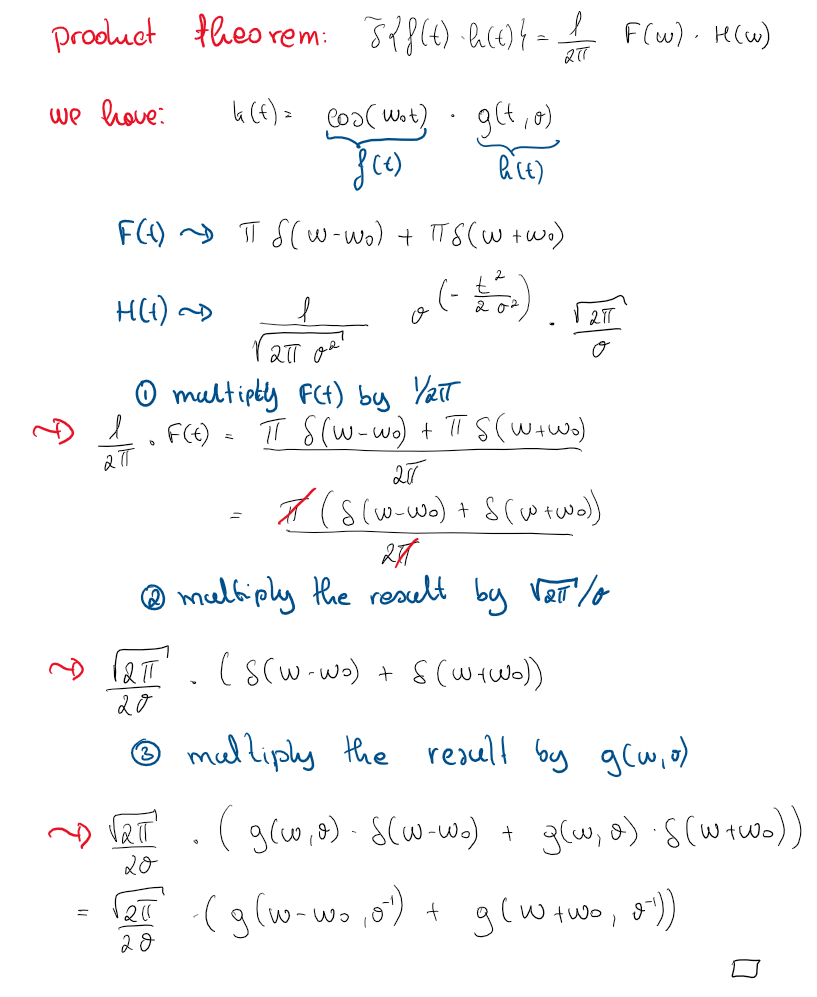 product theorem: F{f(t) · h(t)} = 1/2π F(ω) · H(ω)
we have: h(t) = cos(ω₀t) · g(t, σ)
f(t) h(t)
F(t) ⇝ π δ(ω-ω₀) + π δ(ω+ω₀)
H(t) ⇝ 1/√(2π σ²) σ^(- t²/2σ²) · √2π/σ
① multiply F(t) by 1/2π
⇝ 1/2π · F(t) = (π δ(ω-ω₀) + π δ(ω+ω₀))/2π
= π (δ(ω-ω₀) + δ(ω+ω₀))/2π
② multiply the result by √2π/σ
⇝ √2π/2σ · (δ(ω-ω₀) + δ(ω+ω₀))
③ multiply the result by g(ω,σ)
⇝ √2π/2σ · (g(ω,σ) · δ(ω-ω₀) + g(ω,σ) · δ(ω+ω₀))
= √2π/2σ · (g(ω-ω₀, σ⁻¹) + g(ω+ω₀, σ⁻¹))
□